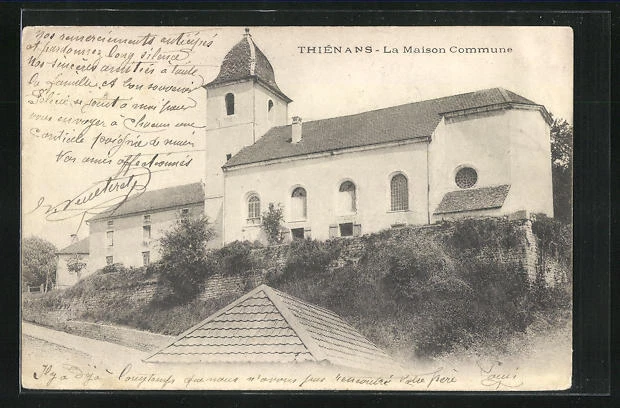 Nos remerciements anticipés
et pardonnez long silence
Nos sincères amitiés à toute
la famille et bon souvenir
Félicie se joint à moi pour
vous envoyer à chacun une
cordiale poignée de main
Vos amis affectionnés
THIÉNANS - La Maison Commune
Il y a déjà longtemps que nous n'avons pas rencontré votre père